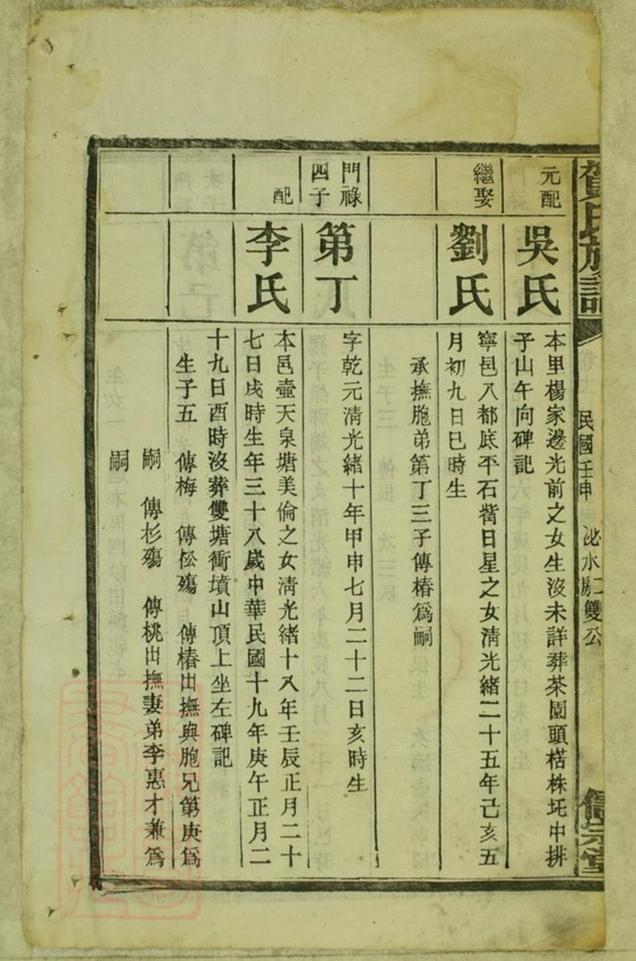 賀氏族譜
民國壬申
泌水
雙公
儁宗堂
元配
吳氏
本里楊家邊光前之女生沒未詳葬茶園頭楛株坵中排
子山午向碑記
繼娶
劉氏
寧邑八都底平石觜日星之女清光緒二十五年己亥五
月初九日巳時生
承撫胞弟第丁三子傳椿爲嗣
門祿
四子
第丁
字乾元清光緒十年甲申七月二十二日亥時生
配
李氏
本邑壷天泉塘美倫之女清光緒十八年壬辰正月二十
七日戌時生年三十八歲中華民國十九年庚午正月二
十九日酉時沒葬雙塘衝墳山頂上坐左碑記
生子五 傳梅 傳松殤 傳椿出撫與胞兄第庚爲
嗣 傳杉殤 傳桃出撫妻弟李惠才兼爲
嗣